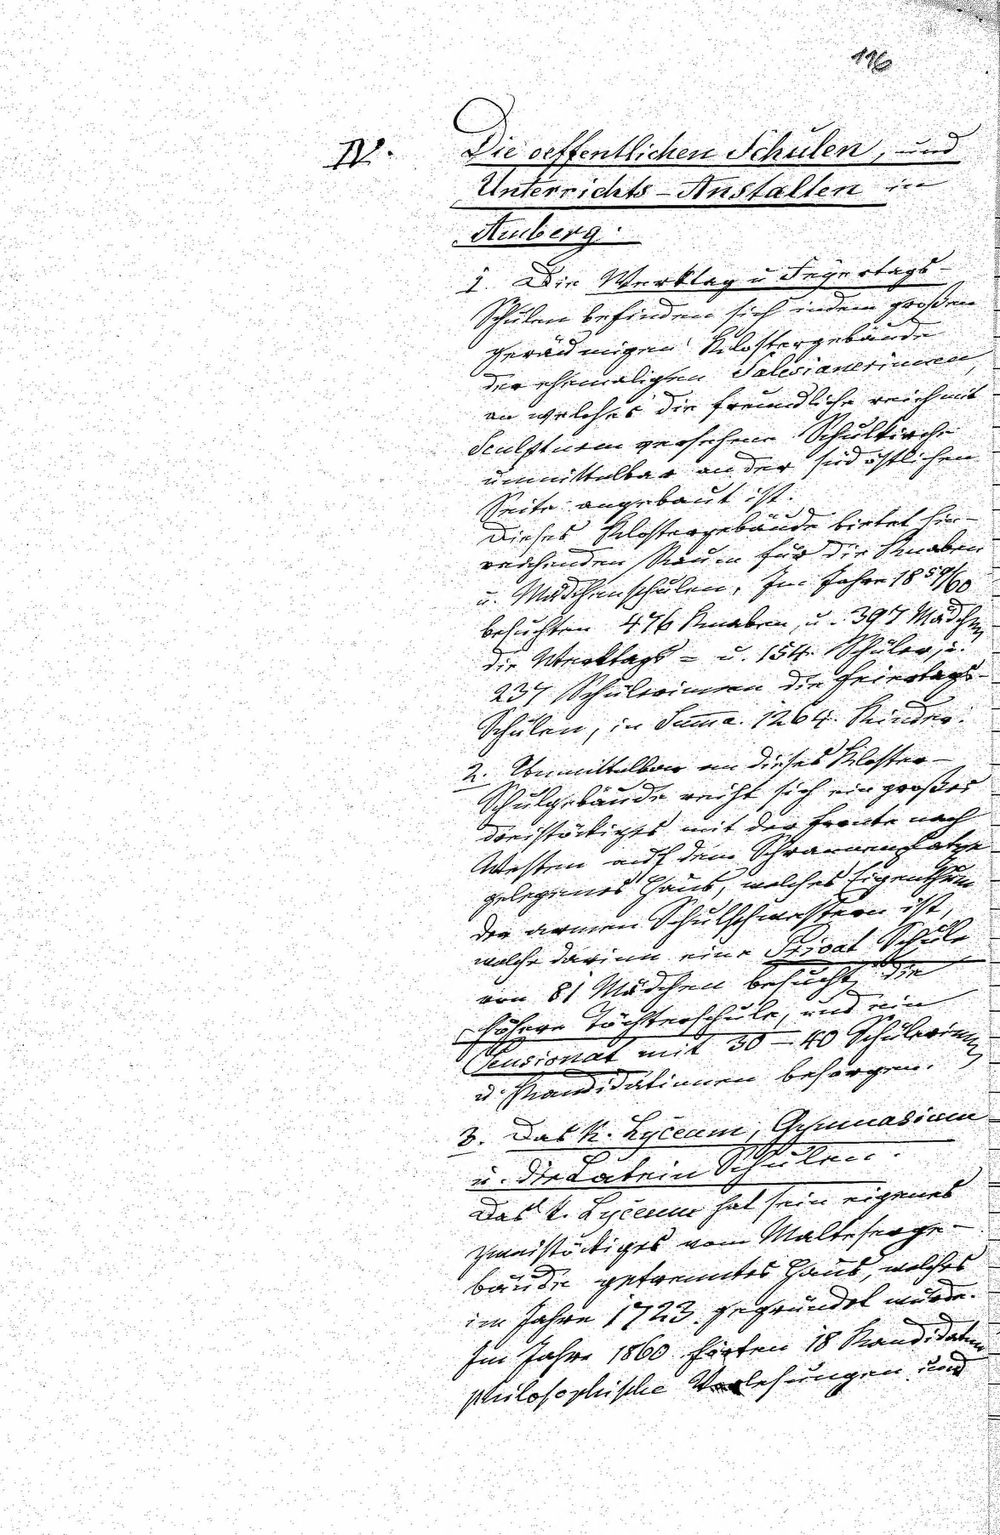 116
IV. Die oeffentlichen Schulen, und
Unterrichts-Anstalten in
Amberg.
1. Die Werktag u Feyertags-
Schulen befinden sich in dem großen
geräumigen Klostergebäude
der ehemaligen Salesianerinnen,
an welches die freundliche reich mit
Sculpturen versehene Schulkirche
unmittelbar an der südöstlichen
Seite angebaut ist.
Dieses Klostergebäude bietet hin-
reichenden Raum für die Knaben
u. Mädchenschulen. Im Jahre 1859/60
besuchten 476 Knaben, u. 397 Mädchen
die Werktags= u. 154. Schüler, u.
237 Schülerinnen die Feiertags-
Schulen, in Suma. 1264. Kinder.
2. Unmittelbar an dieses Kloster-
Schulgebäude reiht sich ein großes
dreistöckiges mit der Fronte nach
Westen auf dem Schrannenplatze
gelegenes Haus, welches Eigenthum
der armen Schulschwestern ist,
welche darinn eine Privat Schule
von 81 Mädchen besucht, die
höhere Töchterschule, und ein
Pensionat mit 30-40 Schülerinnen
u. Kandidatinnen besorgen.
3. Das K. Lyceum, Gymnasium
u. die Latein Schulen.
Das k. Lyceum hat sein eigenes
zweistöckiges vom Malteserge-
bäude getrenntes Haus, welches
im Jahre 1723. gegründet wurde.
Im Jahre 1860 hörten 18 Kandidaten
philosophische Vorlesungen und